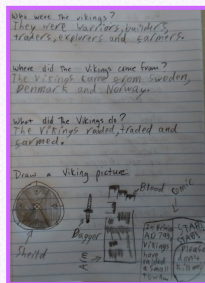 Who were the vikings?
They were warriors, builders,
traders, explorers and farmers.
Where did The Vikings come from?
The vikings came from Sweden,
Denmark and Norway.
What did The Vikings do?
The Vikings raded, traded and
farmed.
Draw a Viking picture.
Blood comic
Dagger
Sheild
Arm
A.D. 793
Vikings
have
raided
a small
STAB!
STAB!
Please